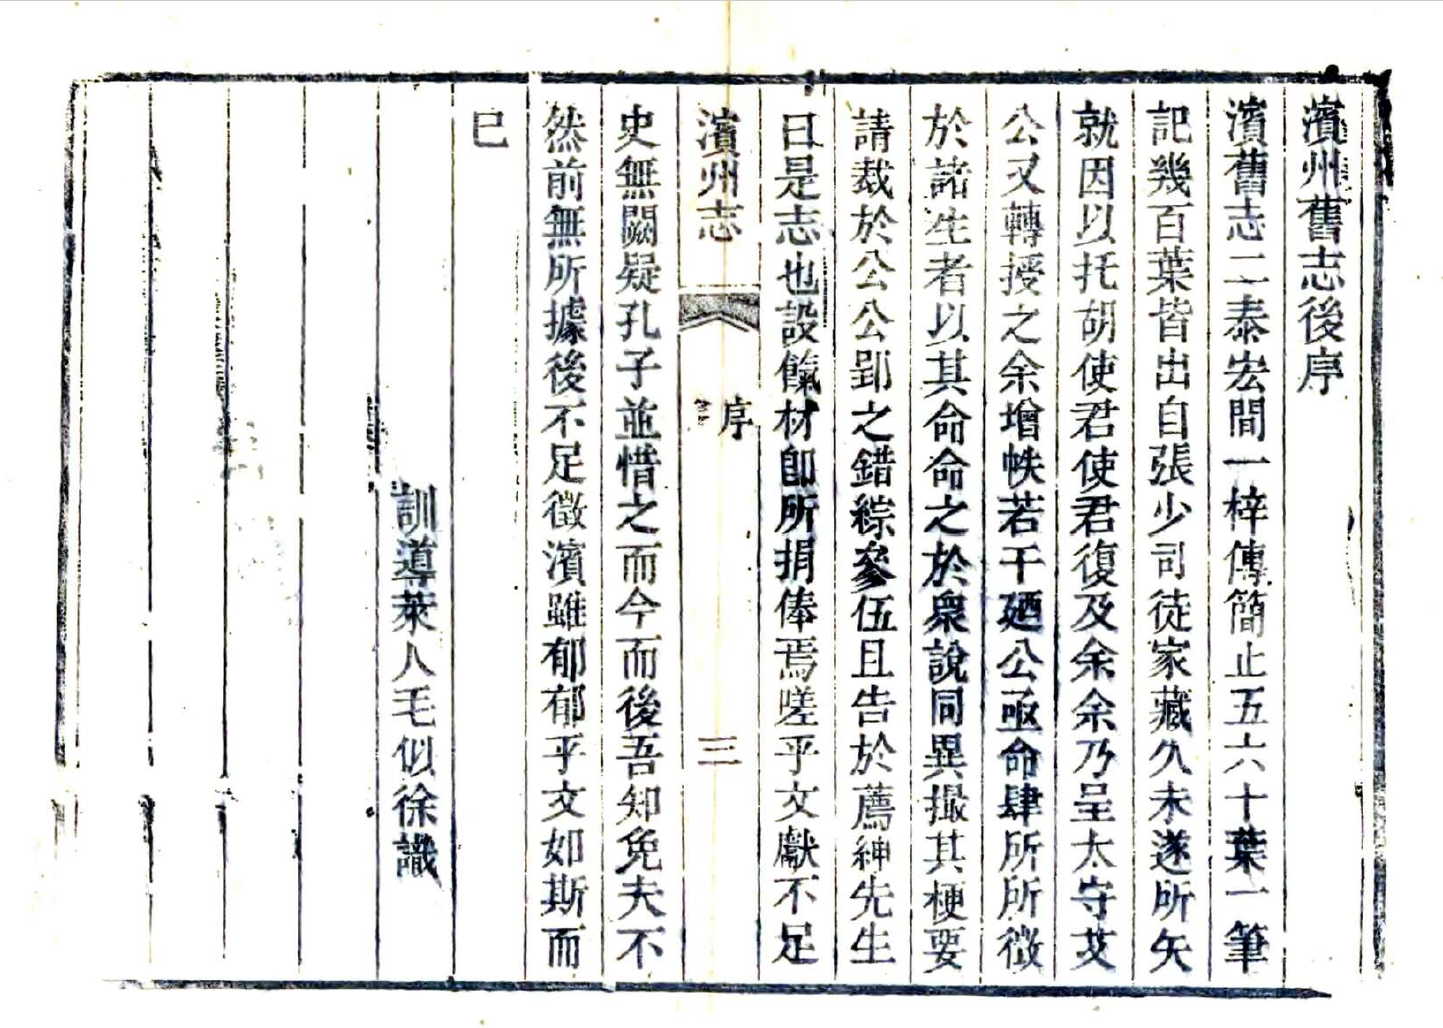 濱州舊志後序
濱舊志二泰宏間一梓傳簡止五六十葉一筆
記幾百葉皆出自張少司徒家藏久未遂所矢
就因以托胡使君使君復及余余乃呈太守艾
公又轉授之余增帙若干廼公亟命肆所所徵
於諸生者以其命命之於衆說同異撮其梗要
請裁於公公郢之錯綜參伍且告於薦紳先生
曰是志也設餼材卽所捐俸焉嗟乎文獻不足
濱州志
序
三
史無闕疑孔子並惜之而今而後吾知免夫不
然前無所據後不足徵濱雖郁郁乎文如斯而
已
訓導萊人毛似徐識